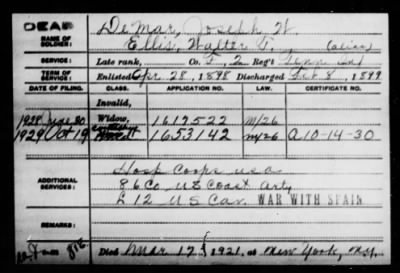 DEAD
NAME OF SOLDIER: De Mar, Joseph W.
Ellis, Walter T. (alias)
SERVICE: Late rank, Co. F, 2 Reg't Tenn Inf
TERM OF SERVICE: Enlisted Apr 28, 1898 Discharged Feb 8, 1899
DATE OF FILING. CLASS. APPLICATION NO. LAW. CERTIFICATE NO.
Invalid,
1928 30 Widow, 1619522 M/26
1929 Oct 19 1653142 M/26 A 10-14-30
ADDITIONAL SERVICES: Hosp Corps USA
86 Co US Coast Arty
L 12 US Cav. WAR WITH SPAIN
REMARKS:
Died Mar 17, 1921, at New York, N.Y.